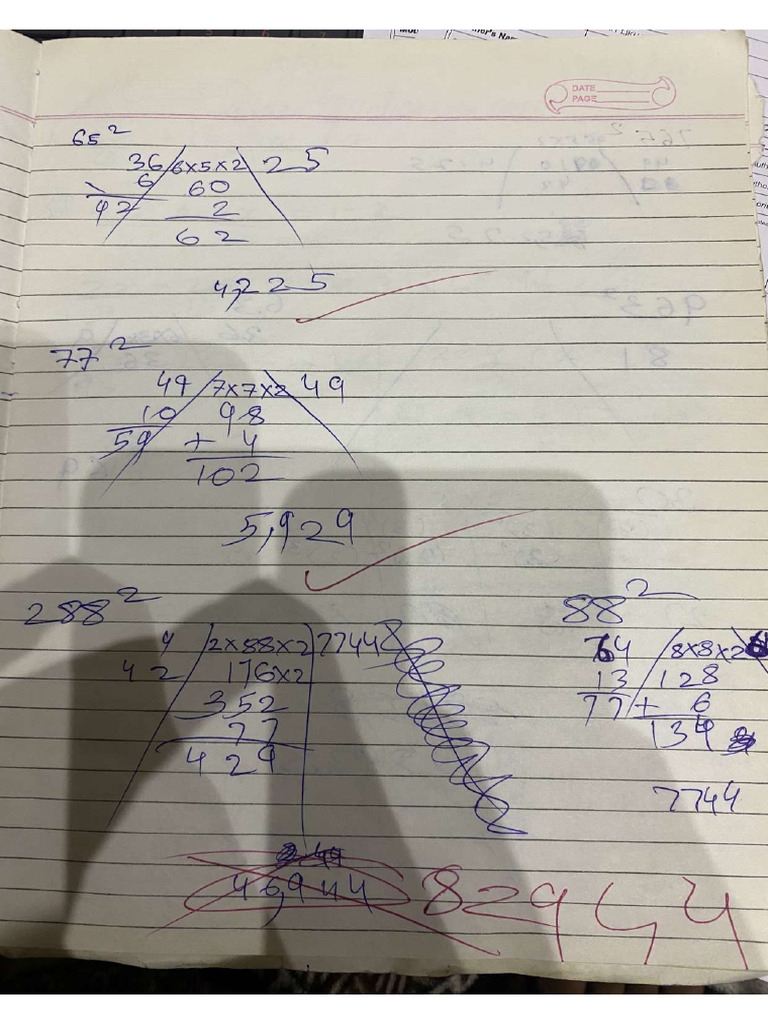 DATE
PAGE
65²
36 6×5×2 25
6 60
42 2
62
4,225
77²
49 7×7×2 49
10 98
59 + 4
102
5,929
288²
4 2×88×2 7744
42 176×2
352
77
429
46,944 82944
88²
64 8×8×2
13 128
77 + 6
134
7744